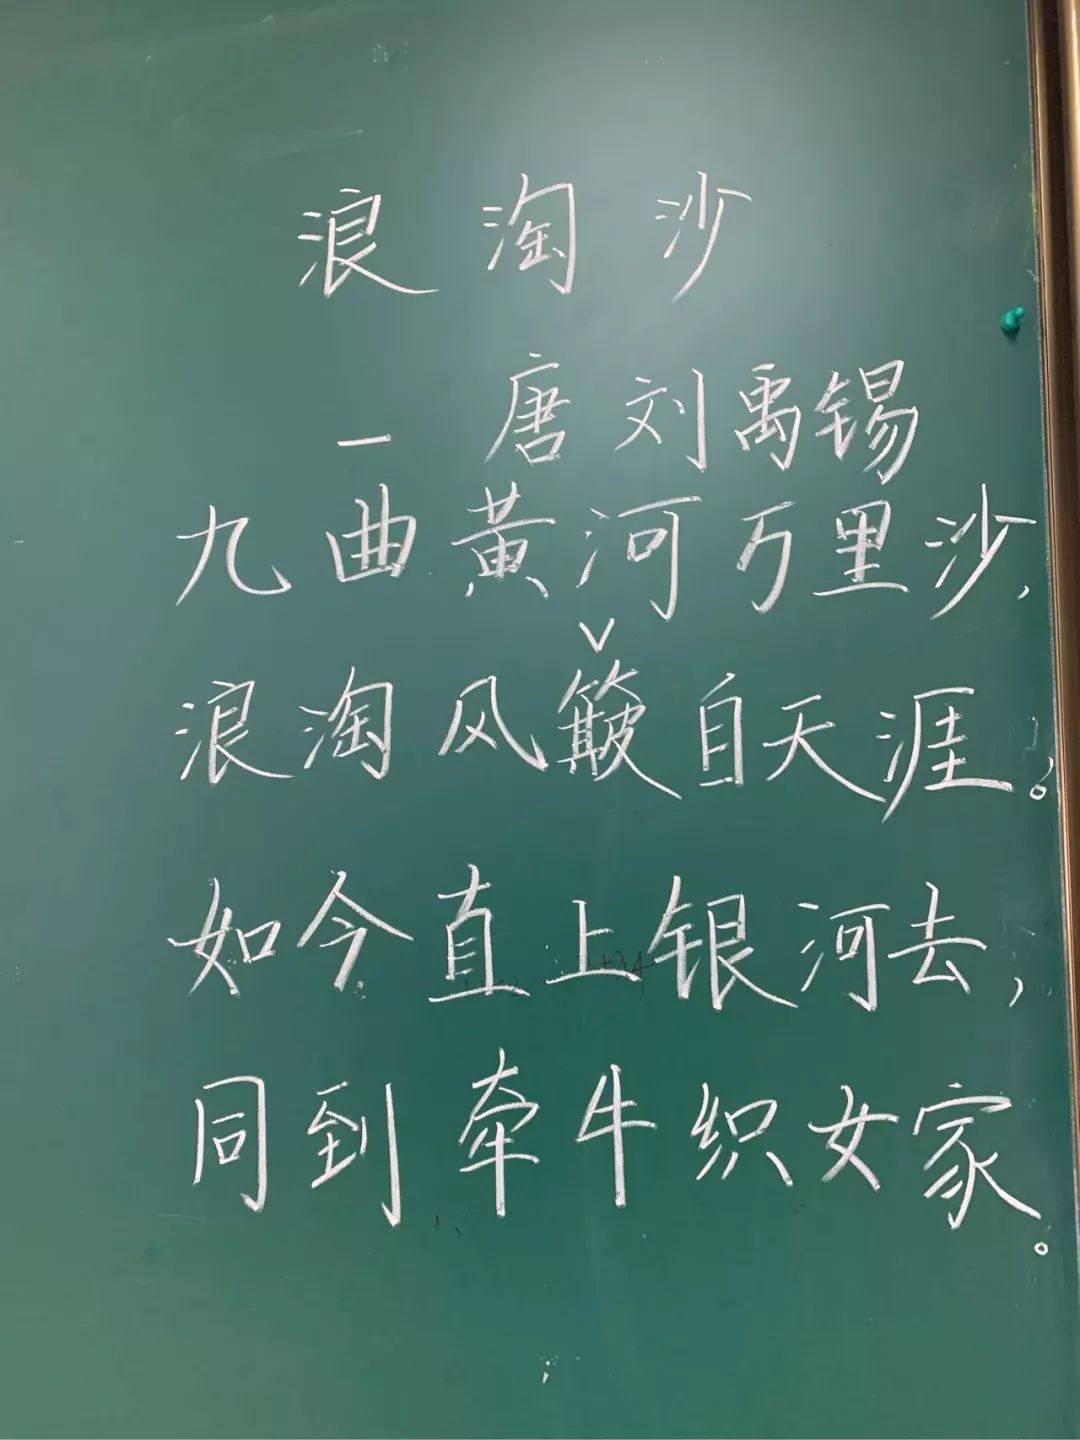 浪淘沙
一 唐 刘禹锡
九曲黄河万里沙,
浪淘风簸自天涯。
如今直上银河去,
同到牵牛织女家。